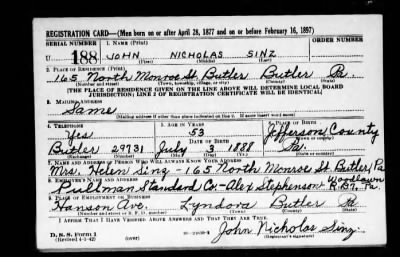 REGISTRATION CARD—(Men born on or after April 28, 1877 and on or before February 16, 1897)
SERIAL NUMBER 1. NAME (Print) ORDER NUMBER
U 188 JOHN NICHOLAS SINZ
(First) (Middle) (Last)
2. PLACE OF RESIDENCE (Print)
165 North Monroe St. Butler Butler Pa.
(Number and street) (Town, township, village, or city) (County) (State)
[THE PLACE OF RESIDENCE GIVEN ON THE LINE ABOVE WILL DETERMINE LOCAL BOARD
JURISDICTION; LINE 2 OF REGISTRATION CERTIFICATE WILL BE IDENTICAL]
3. MAILING ADDRESS
Same
[Mailing address if other than place indicated on line 2. If same insert word same]
4. TELEPHONE 5. AGE IN YEARS 6. PLACE OF BIRTH
Yes 53 Jefferson County
DATE OF BIRTH
Butler 29731 July 3 1888 Pa.
(Exchange) (Number) (Mo.) (Day) (Yr.) (State or country)
7. NAME AND ADDRESS OF PERSON WHO WILL ALWAYS KNOW YOUR ADDRESS
Mrs. Helen Sinz - 165 North Monroe St. Butler, Pa.
8. EMPLOYER'S NAME AND ADDRESS
Pullman Standard Co.-Alex Stephenson R.D.7, Pa.
9. PLACE OF EMPLOYMENT OR BUSINESS
Hanson Ave. Lyndora Butler Pa
(Number and street or R. F. D. number) (Town) (County) (State)
I AFFIRM THAT I HAVE VERIFIED ABOVE ANSWERS AND THAT THEY ARE TRUE.
D. S. S. Form 1
(Revised 4-1-42) (over)
John Nicholas Sinz.
(Registrant's signature)